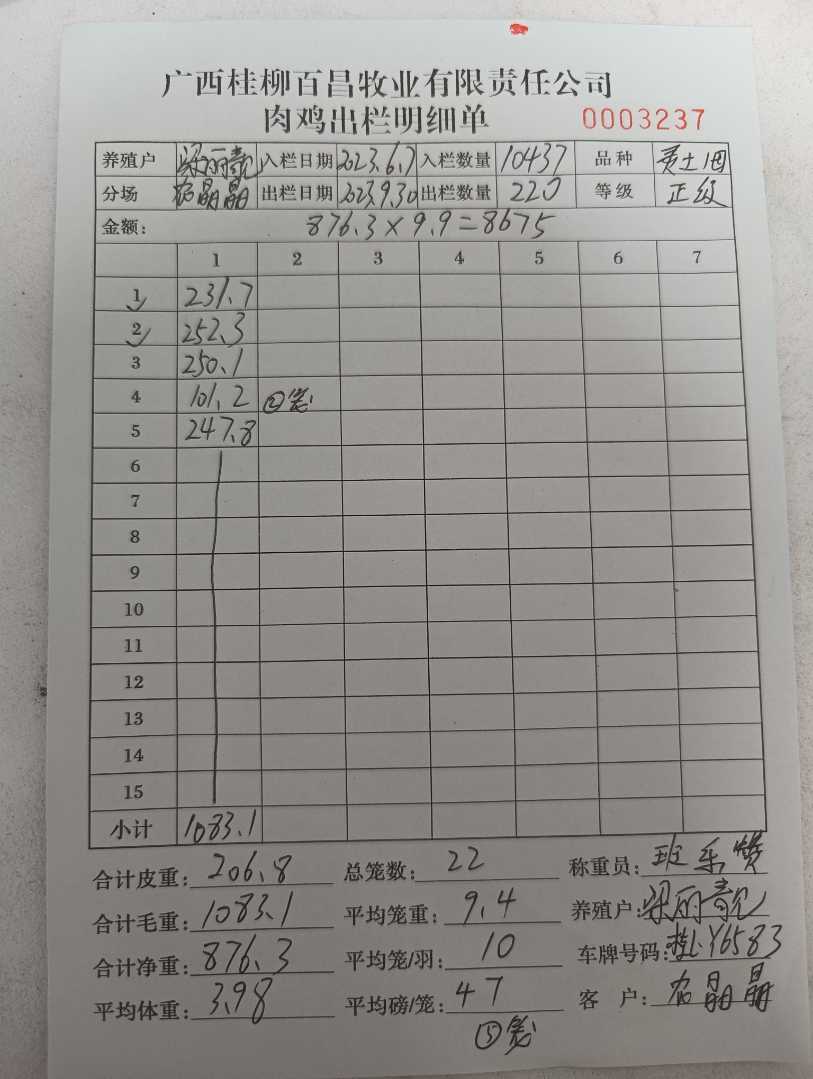 广西桂柳百昌牧业有限责任公司
肉鸡出栏明细单 0003237
养殖户 梁丽靓 入栏日期 2023.6.7 入栏数量 10437 品种
分场 晶晶 出栏日期 2023.9.30 出栏数量 220 等级 正级
金额: 876.3×9.9=8675
1 2 3 4 5 6 7
1 231.7
2 252.3
3 250.1
4 101.2 ②笼
5 247.8
6
7
8
9
10
11
12
13
14
15
小计 1083.1
合计皮重: 206.8 总笼数: 22 称重员: 班乐赞
合计毛重: 1083.1 平均笼重: 9.4 养殖户: 梁丽靓
合计净重: 876.3 平均笼/羽: 10 车牌号码: 桂LY6583
平均体重: 3.98 平均磅/笼: 47 客户: 晶晶
⑤笼